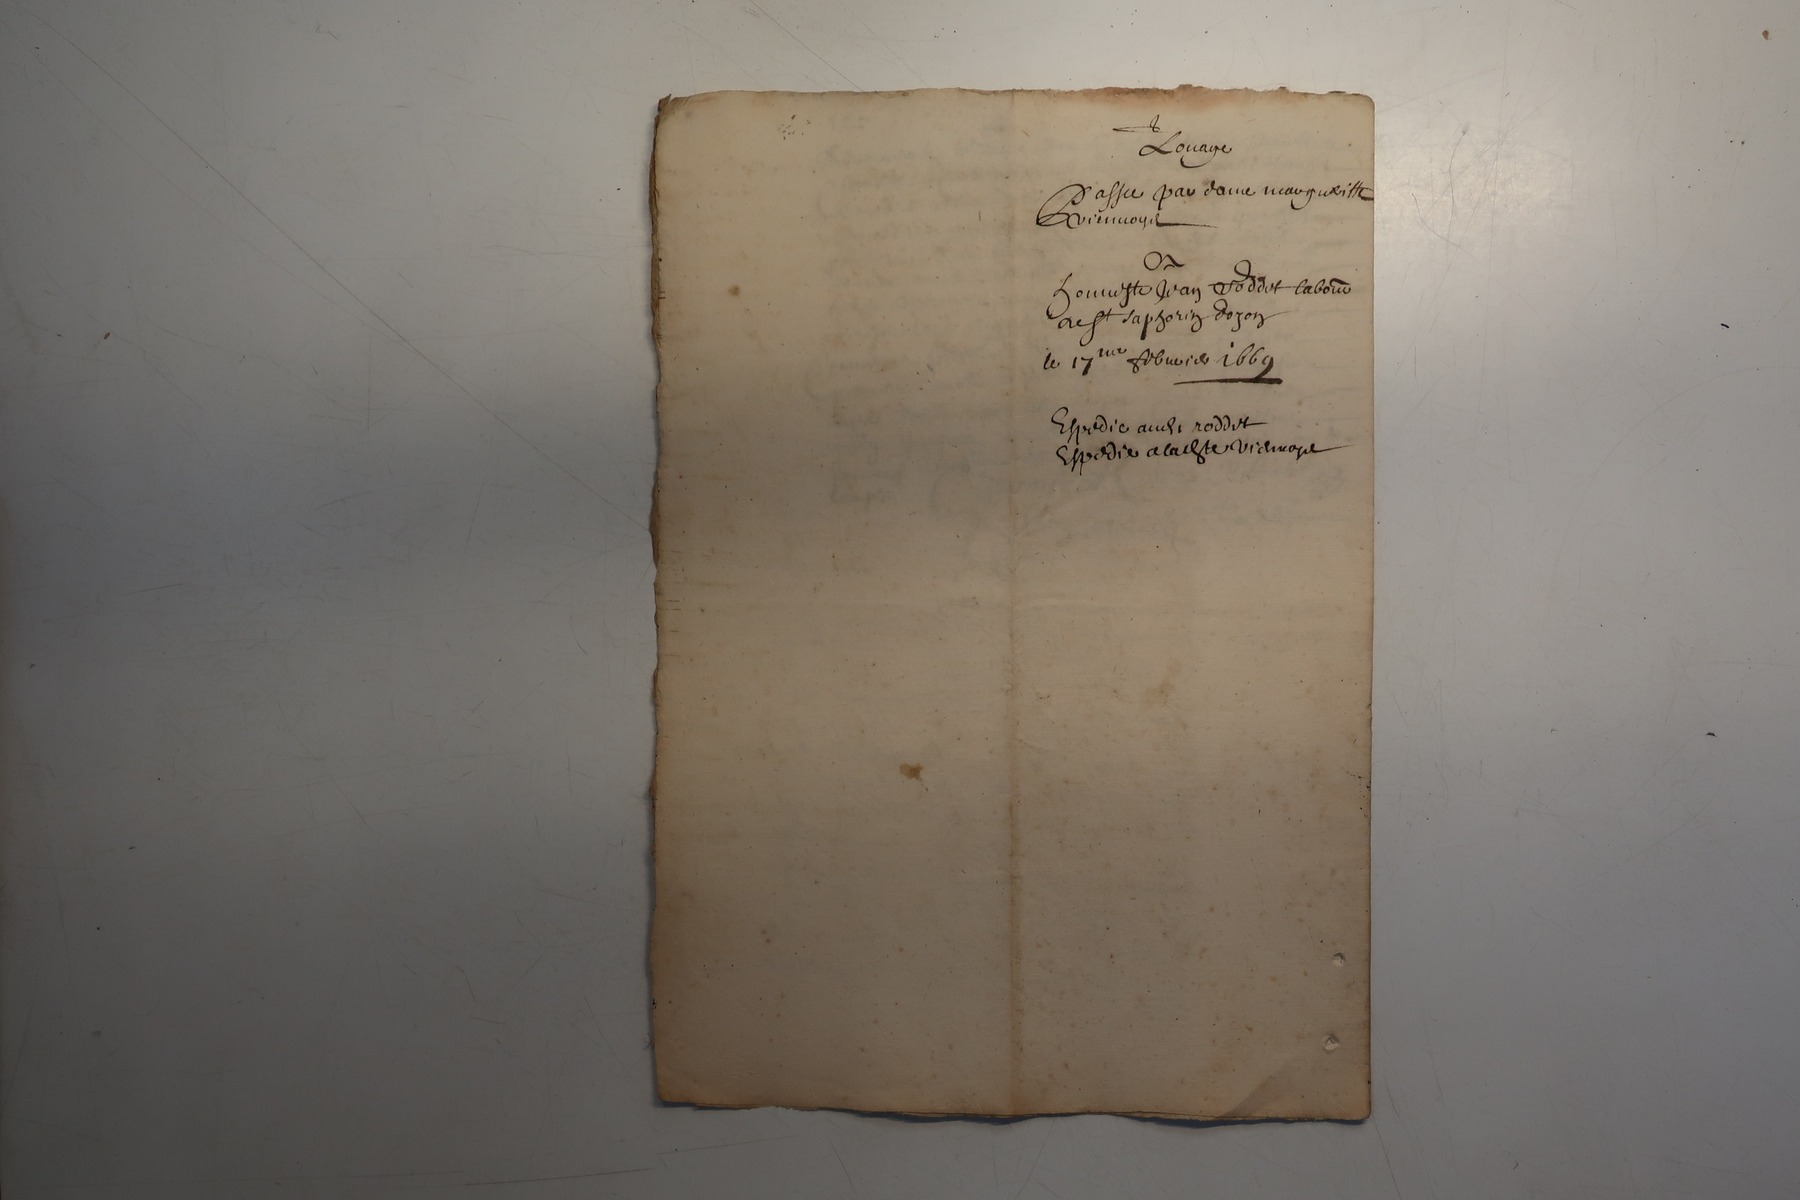 Louage
Passee par dame margueritte
viennoys
A
honneste Jean Roddet labour
de st saphorin dozon
le 17me febvrier 1669
Expedie audt roddet
Expedie a ladte viennoys